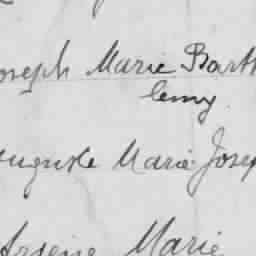 oseph Marie Barth
lemy
uguste Marie Josep
Arsène Marie